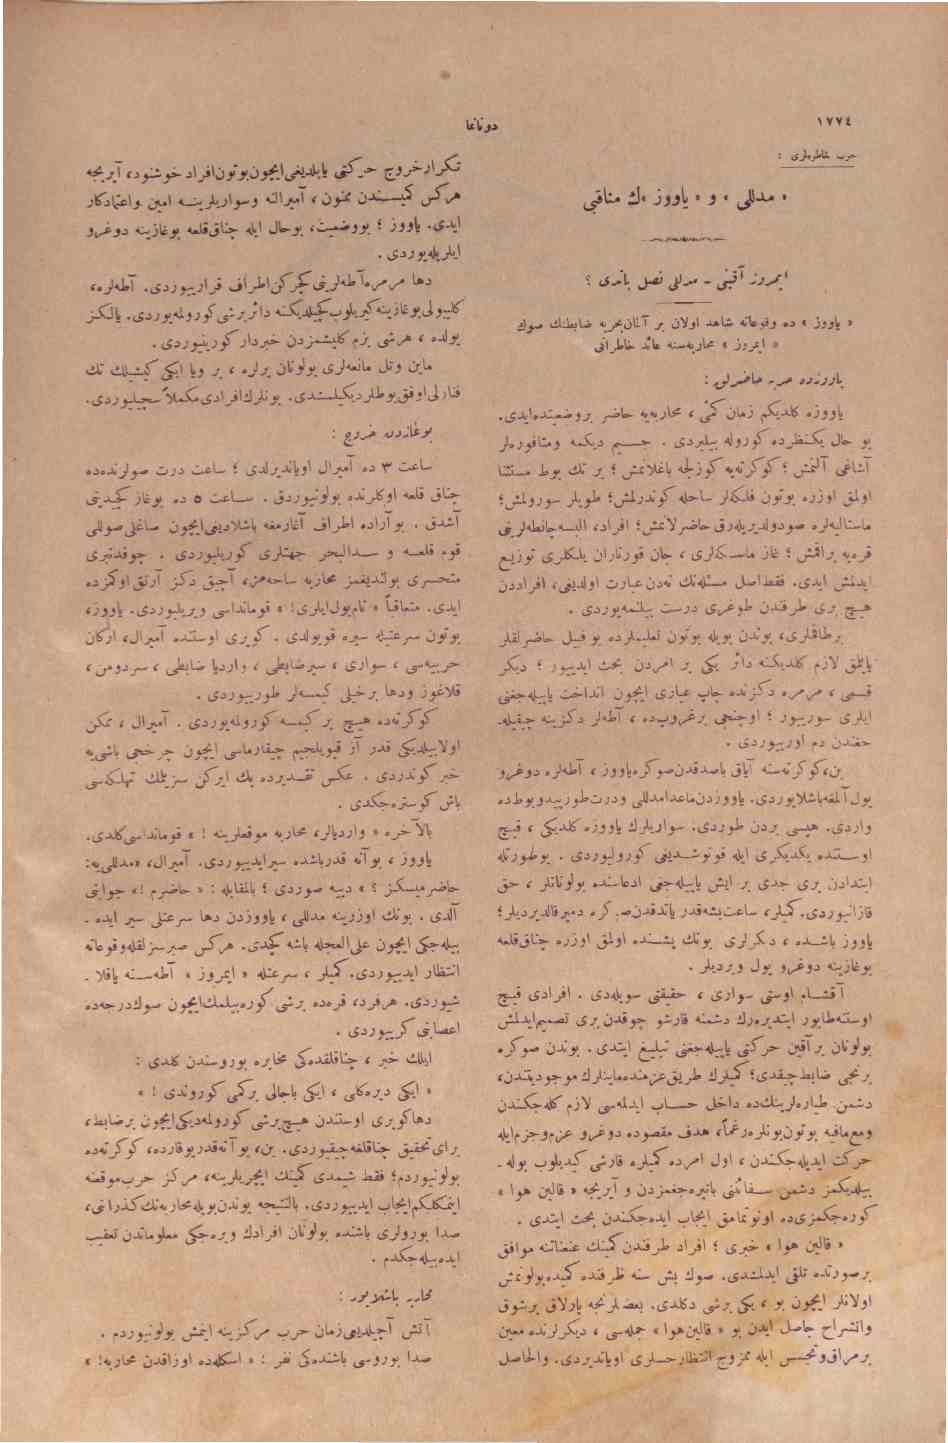 ١٧٧٤
دوناما
حرب خاطره‌لری :
« مدللی » و « ياووز »ك مناقبی
ايمروز آقينی ـ مدللی نصل باتدی ؟
« ياووز » ده وقوعاته شاهد اولان بر آلمان بحريه ضابطنك صوك
« ايمروز » محاربه‌سنه عائد خاطراتی
ياووزده حربه حاضرلق :
ياووزه كلديكم زمان كمی ، محاربه‌يه حاضر بر وضعيتده ايدی.
بو حال يك نظرده كوروله بيليردی . جسيم ديكمه ومتافوره‌لر
آشاغی آلنمش ؛ كوكرته‌يه كوزلجه باغلانمش ؛ بر تك بوط مستثنا
اولمق اوزره بوتون فلكه‌لر ساحله كوندرلمش؛ طوپلر سورولمش؛
ماستاليه‌لره صو دولديريله‌رق حاضرلانمش ؛ افراد، البسه چانطه‌لرينی
قره‌يه براقمش ؛ غاز ماسكه‌لری ، جان قورتاران يلكلری توزيع
ايدلمش ايدی. فقط اصل مسئله‌نك نه‌دن عبارت اولديغی، افراددن
هيچ بری طرفندن طوغری درست بيلنمه‌يوردی .
برطاقملری، بوندن بويله بوتون تعليملرده بو قبيل حاضرلقلر
ياپلمق لازم كلديكنه دائر يكی بر امردن بحث ايدييور ؛ ديكر
قسمی ، مرمره دكزنده چاپ عياری ايچون انداخت ياپيله‌جغنی
ايلری سورييور ؛ اوچنجی بر غروپ ده ، آطه‌لر دكزينه چيقيله‌
جغندن دم اورييوردی .
بن، كوكرته‌سنه آياق باصدقدن صوكره ياووز ، آطه‌لره دوغرو
يول آلمغه باشلايوردی. ياووزدن ماعدا مدللی ودرت طورپيدو بوط ده
واردی. هپسی بردن طوردی. سواريلرك ياووزه كلديكی ، قيچ
اوستنده يكديكری ايله قونوشديغی كورولييوردی . بو طورتله
ابتدادن بری جدی بر ايش ياپيله‌جغی ادعاسنده بولونانلر ، حق
قازانيوردی. كميلر، ساعت بشه قدر ياتدقدن صوكره دمير قالديرديلر؛
ياووز باشده ، ديكرلری بونك پشنده اولمق اوزره چناق قلعه
بوغازينه دوغرو يول ويرديلر .
آقشام اوستی سواری ، حقيقتی سويله‌دی . افرادی قيچ
اوستنه طابور ايتديره‌رك دشمنه قارشو چوقدن بری تصميم ايدلمش
بولونان بر آقين حركتی ياپيله‌جغنی تبليغ ايتدی . بوندن صوكره
برنجی ضابط چيقدی؛ كميلرك طريق عزمنده ماينلرك موجوديتندن،
دشمن طياره‌لرينك ده داخل حساب ايدلمه‌سی لازم كله‌جكندن
ومع مافيه بوتون بونلره رغماً، هدف مقصوده دوغرو عزم وجزم ايله
حركت ايديله‌جكندن ، اول امرده كميلره قارشی كيديلوب بوله‌ـ
بيلديكمز دشمن سفائننی باتيره‌جغمزدن و آيريجه « قالين هوا »
كوره‌جكمزی ده اونوتمامق ايجاب ايده‌جكندن بحث ايتدی .
« قالين هوا » خبری ؛ افراد طرفندن كمينك عنعناتنه موافق
بر صورتده تلقی ايدلمشدی. صوك بش سنه ظرفنده كميده بولونمش
اولانلر ايچون بو ، يكی برشی دكلدی. بعضلرنجه پارلاق بر شوق
وانشراح حاصل ايدن بو « قالين هوا » جمله‌سی ، ديكرلرنده معين
بر مراق وتجسس ايله ممزوج انتظار حسلری اوياندیردی. والحاصل
تكرار خروج حركتی ياپلديغی ايچون بوتون افراد خوشنود، آيريجه
هركس كميسندن ممنون ، آميرالنه وسواريلرينه امين واعتمادكار
ايدی. ياووز ؛ بو وضعيت، بو حال ايله چناق قلعه بوغازينه دوغرو
ايلريله‌يوردی .
دها مرمره آطه‌لرينی كچركن اطراف قرارييوردی. آطه‌لره،
كليبولی بوغازينه كيريلوب كچيلديكنه دائر برشی كورولمه‌يوردی. يالكز
يولده ، هرشی بزم كليشمزدن خبردار كورينيوردی .
ماين وتل مانعه‌لری بولونان يرلره ، بر ويا ايكی كيشيلك تك
فنارلی اوفق بوطلر ديكيلمشدی. بونلرك افرادی مكملاً سچيلييوردی.
بوغازدن خروج :
ساعت ٣ ده آميرال اوياندیرلدی ؛ ساعت درت صولرنده ده
چناق قلعه اوكلرنده بولونيوردق . ساعت ٥ ده بوغاز كچيدينی
آشدق . بو آراده اطراف آغارمغه باشلاديغی ايچون صاغلی صوللی
قوم قلعه و سدالبحر جهتلری كورولييوردی . چوقدنبری
متحسری بولنديغمز محاربه ساحه‌مز، آچيق دكز آرتق اوكمزده
ايدی. متعاقباً « تام يول ايلری! » قومانداسی ويريلييوردی. ياووز،
بوتون سرعتيله سيره قويولدی . كوپری اوستنده آميرال، اركان
حربيه‌سی ، سواری ، سير ضابطی ، وارديا ضابطی ، سردومن ،
قلاغوز ودها بر خيلی كيمسه‌لر طورييوردی .
كوكرته‌ده هيچ بر كيمسه كورولمه‌يوردی . آميرال ، ممكن
اولابيلديكی قدر آز قيويلجيم چيقارماسی ايچون چرخجی باشی‌يه
خبر كوندردی . عكس تقديرده پك ايركن سزيلمك تهلكه‌سی
باش كوستره‌جكدی .
بالآخره « وارديالر، محاربه موقعلرينه ! » قومانداسی كلدی.
ياووز ، بو آنه قدر باشده سير ايدييوردی. آميرال، «مدللی‌يه:
حاضر ميسكز ؟ » دييه صوردی ؛ بالمقابله : « حاضرم !» جوابنی
آلدی . بونك اوزرينه مدللی ، ياووزدن دها سرعتلی سير ايده‌ـ
بيله‌جكی ايچون علی العجله باشه كچدی. هركس صبرسزلقله وقوعاته
انتظار ايدييوردی. كميلر ، سرعتله « ايمروز » آطه‌سنه ياقلا ـ
شيوردی. هر فرد، قره‌ده برشی كوره‌بيلمك ايچون صوك درجه‌ده
اعصابنی كرييوردی .
ايلك خبر ، چناقلقده‌كی مخابره بوروسندن كلدی :
« ايكی ديره‌كلی ، ايكی باجالی بر كمی كوروندی ! »
دها كوپری اوستندن هيچ برشی كورولمه‌ديكی ايچون بر ضابط،
برای تحقيق چناقلغه چيقييوردی. بن، بو آنه قدر يوقارده، كوكرته‌ده
بولونيوردم؛ فقط شيمدی كمينك ايچريلرينه، مركز حرب موقعنه
ايتمكلكم ايجاب ايدييوردی. بالنتيجه بوندن بويله محاربه‌نك كذراننی،
صدا بورولری باشنده بولونان افرادك ويره‌جكی معلوماتدن تعقيب
ايده‌بيله‌جكدم .
محاربه باشلايور :
آتش آچيلديغی زمان حرب مركزينه اينمش بولونيوردم .
صدا بوروسی باشنده‌كی نفر : « اسكله‌ده اوزاقدن محاربه! »